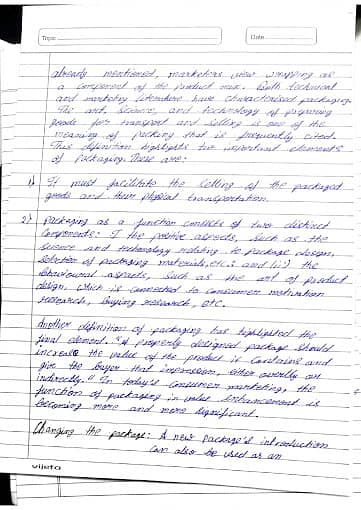 Topic
Date
already mentioned, marketers view wrapping as
a component of the product mix. Both technical
and marketing literature have characterised packaging.
The art, science, and technology of preparing
goods for transport and selling is one of the
meaning of packing that is frequently cited.
This definition highlights two important elements
of Packaging. These are:
1) It must facilitate the selling of the packaged
goods and their physical transportation.
2) Packaging as a function consists of two distinct
Components: I the positive aspects, such as the
science and technology relating to package design,
selection of packaging materials, etc.; and (ii) the
behavioural aspects, such as the art of product
design, which is connected to consumer motivation
research, buying research, etc.
Another definition of packaging has highlighted the
final element. "A properly designed package should
increase the value of the product it contains and
give the buyer that impression, either overtly or
indirectly." In today's Consumer marketing, the
function of packaging in value enhancement is
becoming more and more significant.
Changing the package: A new package's introduction
can also be used as an
vijeta